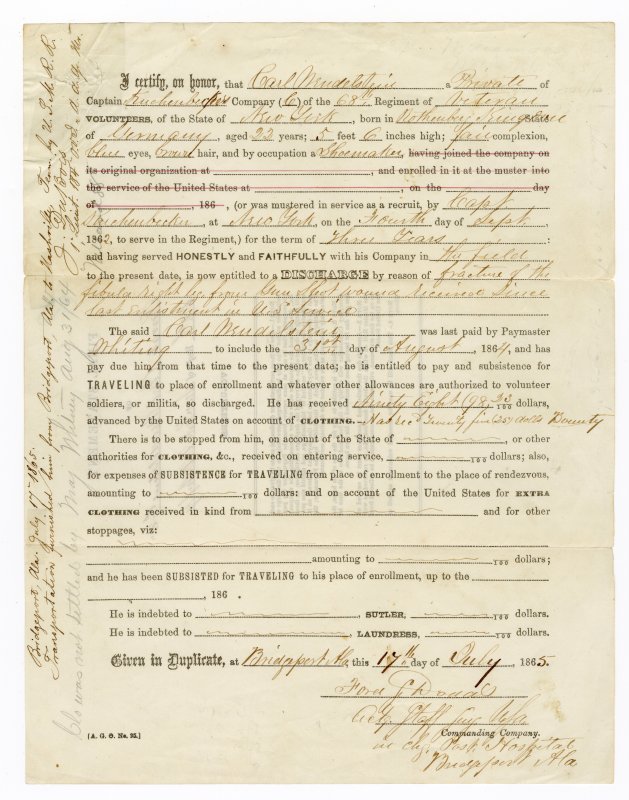 I certify, on honor, that Carl Wendelstein a Private of
Captain Kuchenbecker Company (C) of the 68th Regiment of Veteran
VOLUNTEERS, of the State of New York, born in Rothenberg
of Germany, aged 22 years; 5 feet 6 inches high; fair complexion,
blue eyes, brown hair, and by occupation a Shoemaker, having joined the company on
its original organization at , and enrolled in it at the muster into
the service of the United States at , on the day
of , 186 , (or was mustered in service as a recruit, by Capt
Kuchenbecker, at New York, on the Fourth day of Sept,
1862, to serve in the Regiment,) for the term of Three Years :
and having served HONESTLY and FAITHFULLY with his Company in the field
to the present date, is now entitled to a DISCHARGE by reason of fracture of the
fibula right leg from Gun Shot wound received since
last Enlistment in U.S. Service
The said Carl Wendelstein was last paid by Paymaster
Whiting to include the 31st day of August, 1864, and has
pay due him from that time to the present date; he is entitled to pay and subsistence for
TRAVELING to place of enrollment and whatever other allowances are authorized to volunteer
soldiers, or militia, so discharged. He has received Ninety Eight (98 33/100 dollars,
advanced by the United States on account of CLOTHING. Has rec'd Twenty five (25) dolls Bounty
There is to be stopped from him, on account of the State of , or other
authorities for CLOTHING, &c., received on entering service, 100 dollars; also,
for expenses of SUBSISTENCE for TRAVELING from place of enrollment to the place of rendezvous,
amounting to 100 dollars: and on account of the United States for EXTRA
CLOTHING received in kind from and for other
stoppages, viz:
amounting to 100 dollars;
and he has been SUBSISTED for TRAVELING to his place of enrollment, up to the
, 186 .
He is indebted to , SUTLER, 100 dollars.
He is indebted to , LAUNDRESS, 100 dollars.
Given in Duplicate, at Bridgeport Ala this 17th day of July, 1865.
Actg Staff Surg USA
Commanding Company.
in chg. Post Hospital
Bridgeport Ala
[A. G. O. No. 95.]
Bridgeport, Ala. July 17 1865.
Transportation furnished him from Bridgeport Ala. to Nashville, Tenn. by U.S. Mil. R.R.
J. DuBois
1" Lieut.
was not settled by Maj Whiting Aug 31/64